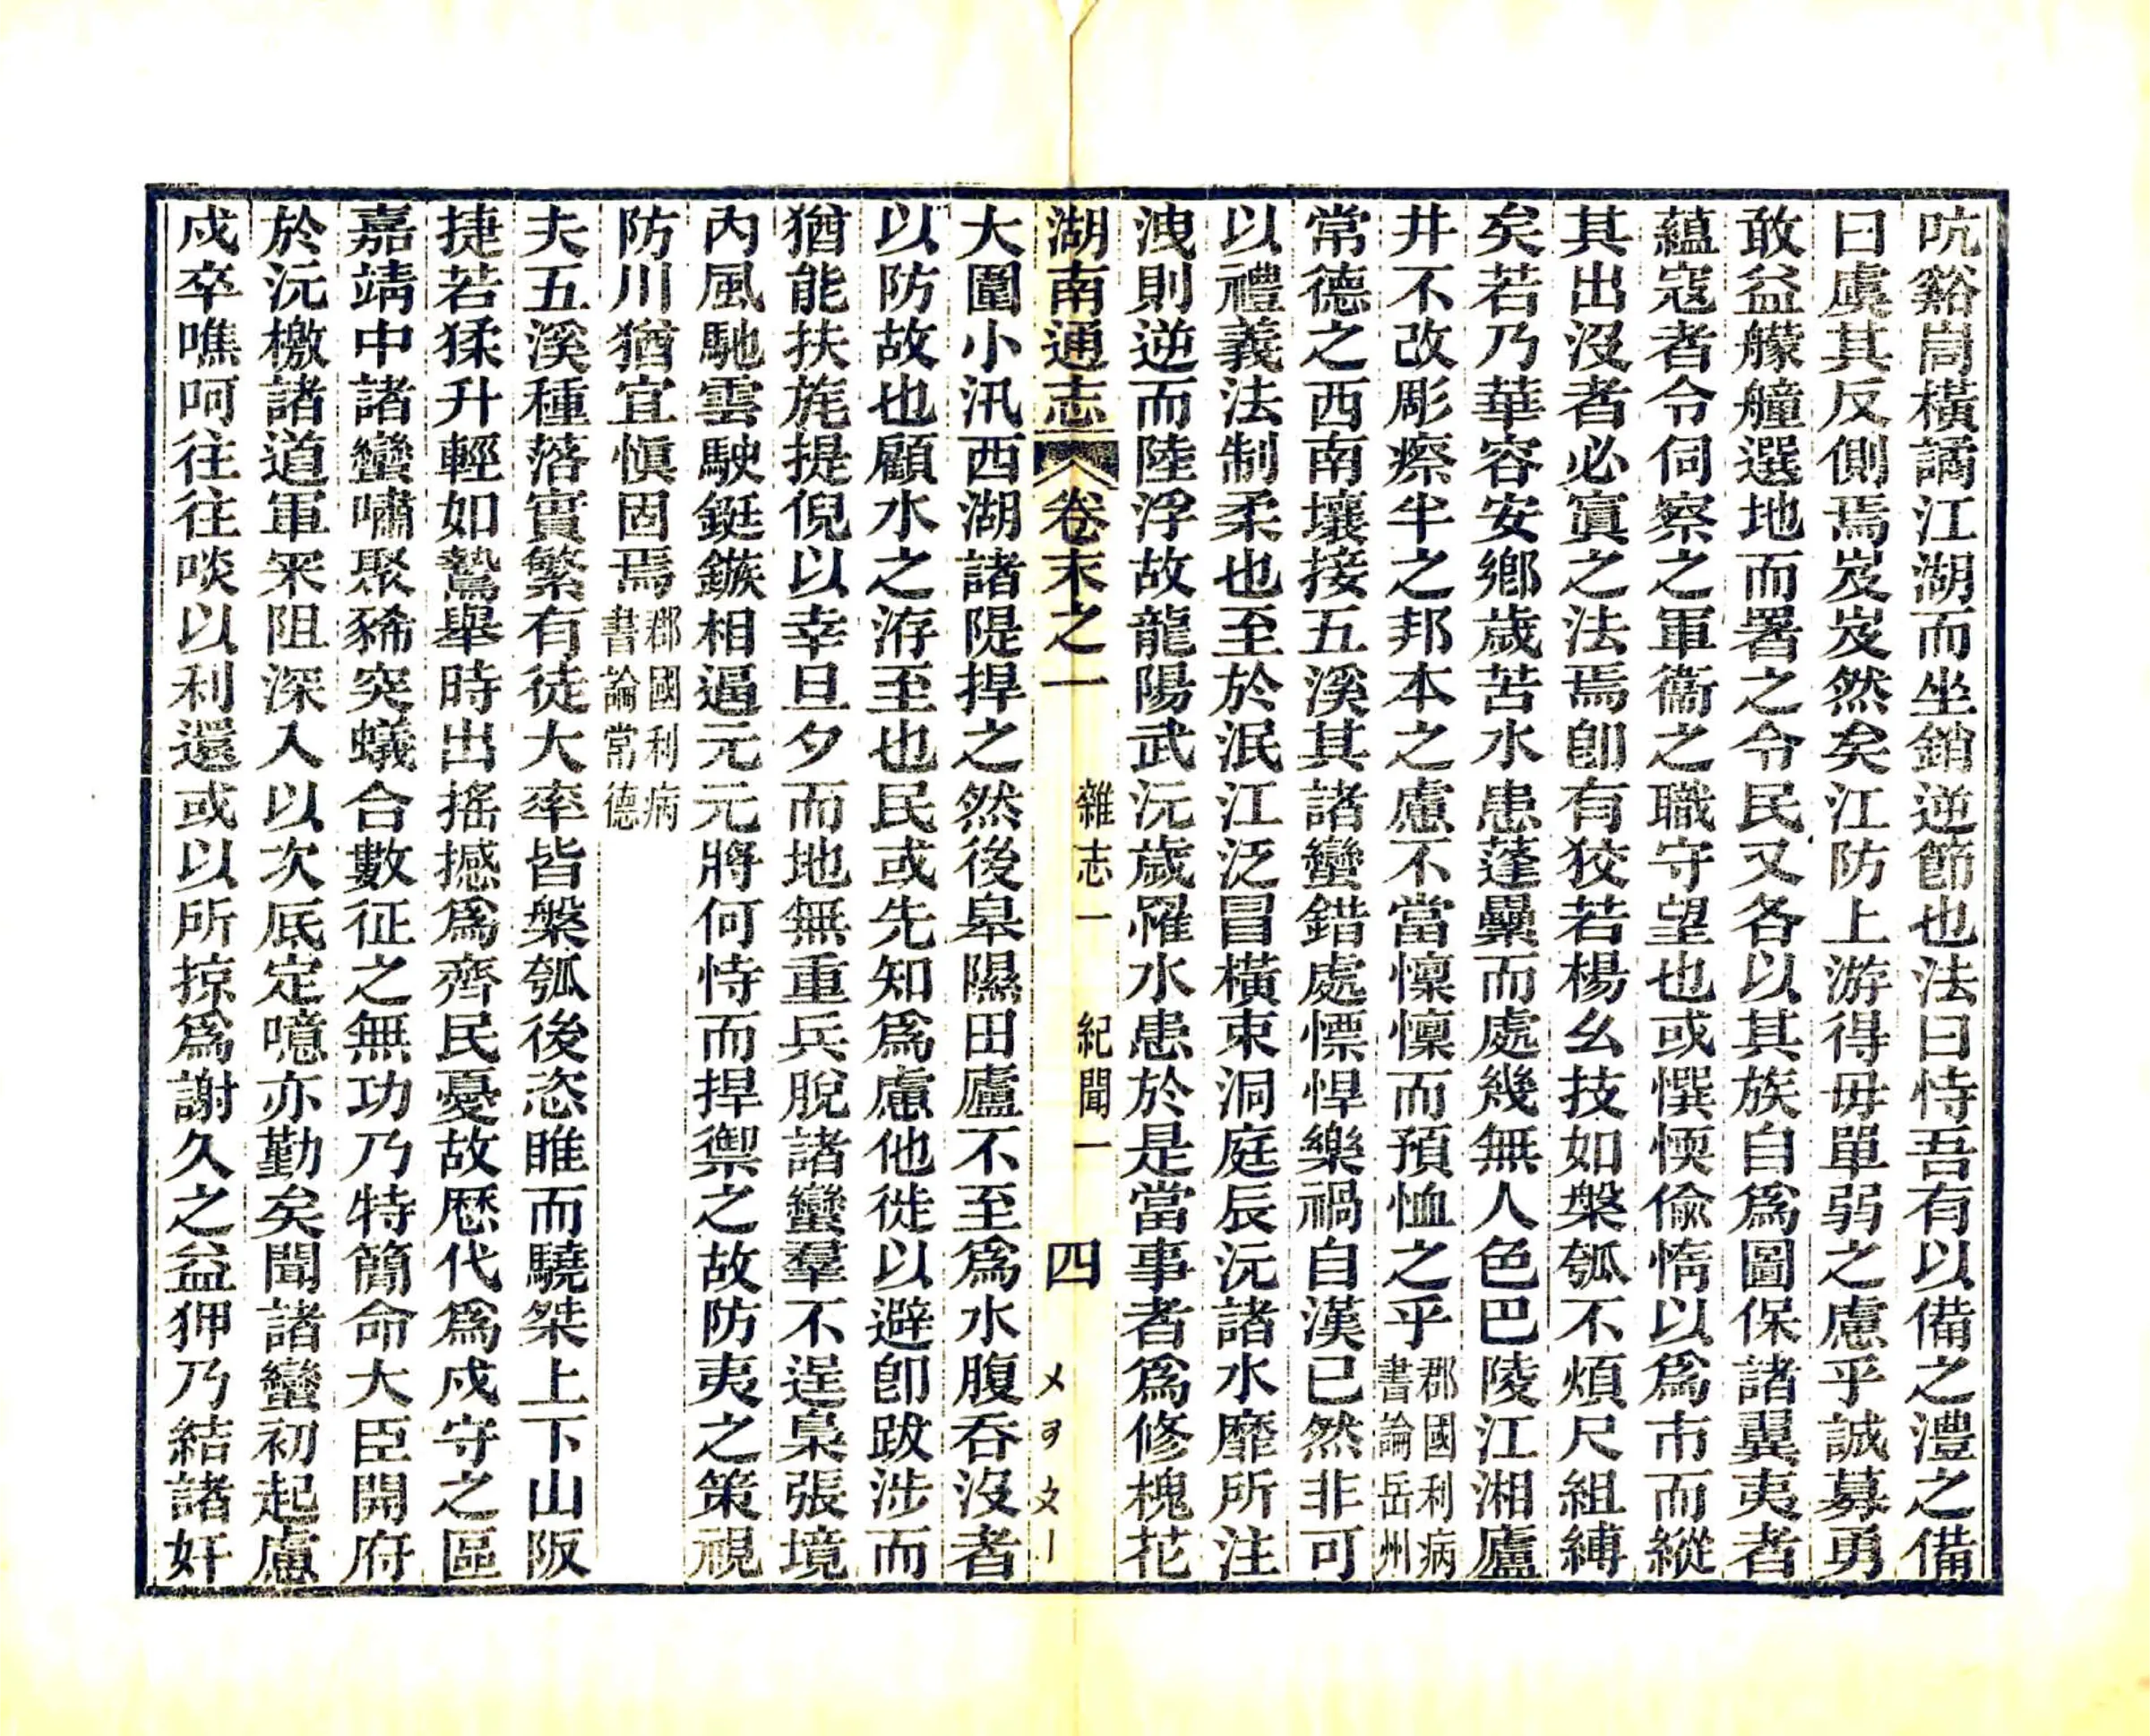 吭谿崗橫譎江湖而坐銷逆節也法曰恃吾有以備之澧之備
曰虞其反側焉岌岌然矣江防上游得毋單弱之慮乎誠募勇
敢益艨艟選地而署之令民又各以其族自爲圖保諸翼夷者
蘊寇者令伺察之軍衞之職守望也或惧愞偷惰以爲市而縱
其出沒者必寘之法焉卽有狡若楊幺技如槃瓠不煩尺組縛
矣若乃華容安鄉歲苦水患蓬藁而處幾無人色巴陵江湘廬
井不改彫瘵半之邦本之慮不當懍懍而預恤之乎郡國利病書論岳州
常德之西南壤接五溪其諸蠻錯處慓悍樂禍自漢已然非可
以禮義法制柔也至於泯江泛冒橫束洞庭辰沅諸水靡所注
洩則逆而陸浮故龍陽武沅歲罹水患於是當事者爲修槐花
湖南通志 卷末之一 雜志一 紀聞一 四
大圍小汛西湖諸隄捍之然後皐隰田廬不至爲水腹吞沒者
以防故也顧水之洊至也民或先知爲慮他徙以避卽跋涉而
猶能扶旄提倪以幸旦夕而地無重兵脫諸蠻羣不逞梟張境
內風馳雲駛鋌鏃相逼元元將何恃而捍禦之故防夷之策視
防川猶宜愼固焉郡國利病書論常德
夫五溪種落實繁有徒大率皆槃瓠後恣睢而驍桀上下山阪
捷若猱升輕如鷙舉時出搖撼爲齊民憂故歷代爲戍守之區
嘉靖中諸蠻嘯聚豨突蟻合數征之無功乃特簡命大臣開府
於沅檄諸道軍罙阻深入以次底定噫亦勤矣聞諸蠻初起慮
戍卒噍呵往往啖以利還或以所掠爲謝久之益狎乃結諸奸